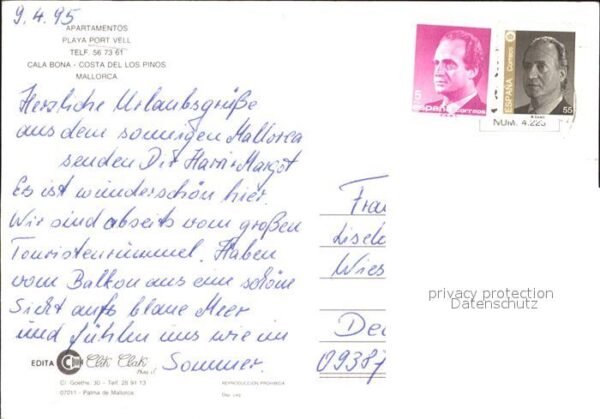 9.4.95
APARTAMENTOS
PLAYA PORT VELL
TELF. 56 73 61
CALA BONA - COSTA DEL LOS PINOS
MALLORCA
Herzliche Urlaubsgrüße
aus dem sonnigen Mallorca
senden Dir Harri + Margot
Es ist wunderschön hier.
Wir sind abseits vom großen
Touristenrummel. Haben
vom Balkon aus eine schöne
Sicht aufs blaue Meer
und fühlen uns wie im
Sommer.
EDITA Clik Clak
C/. Goethe, 30 - Telf. 28 91 13
07011 - Palma de Mallorca
REPRODUCCION PROHIBIDA
Dep. Leg.
5
España correos
ESPAÑA Correos
55
NUM. 4.223
Frau
Lisel
Wies
Deu
09387
privacy protection
Datenschutz